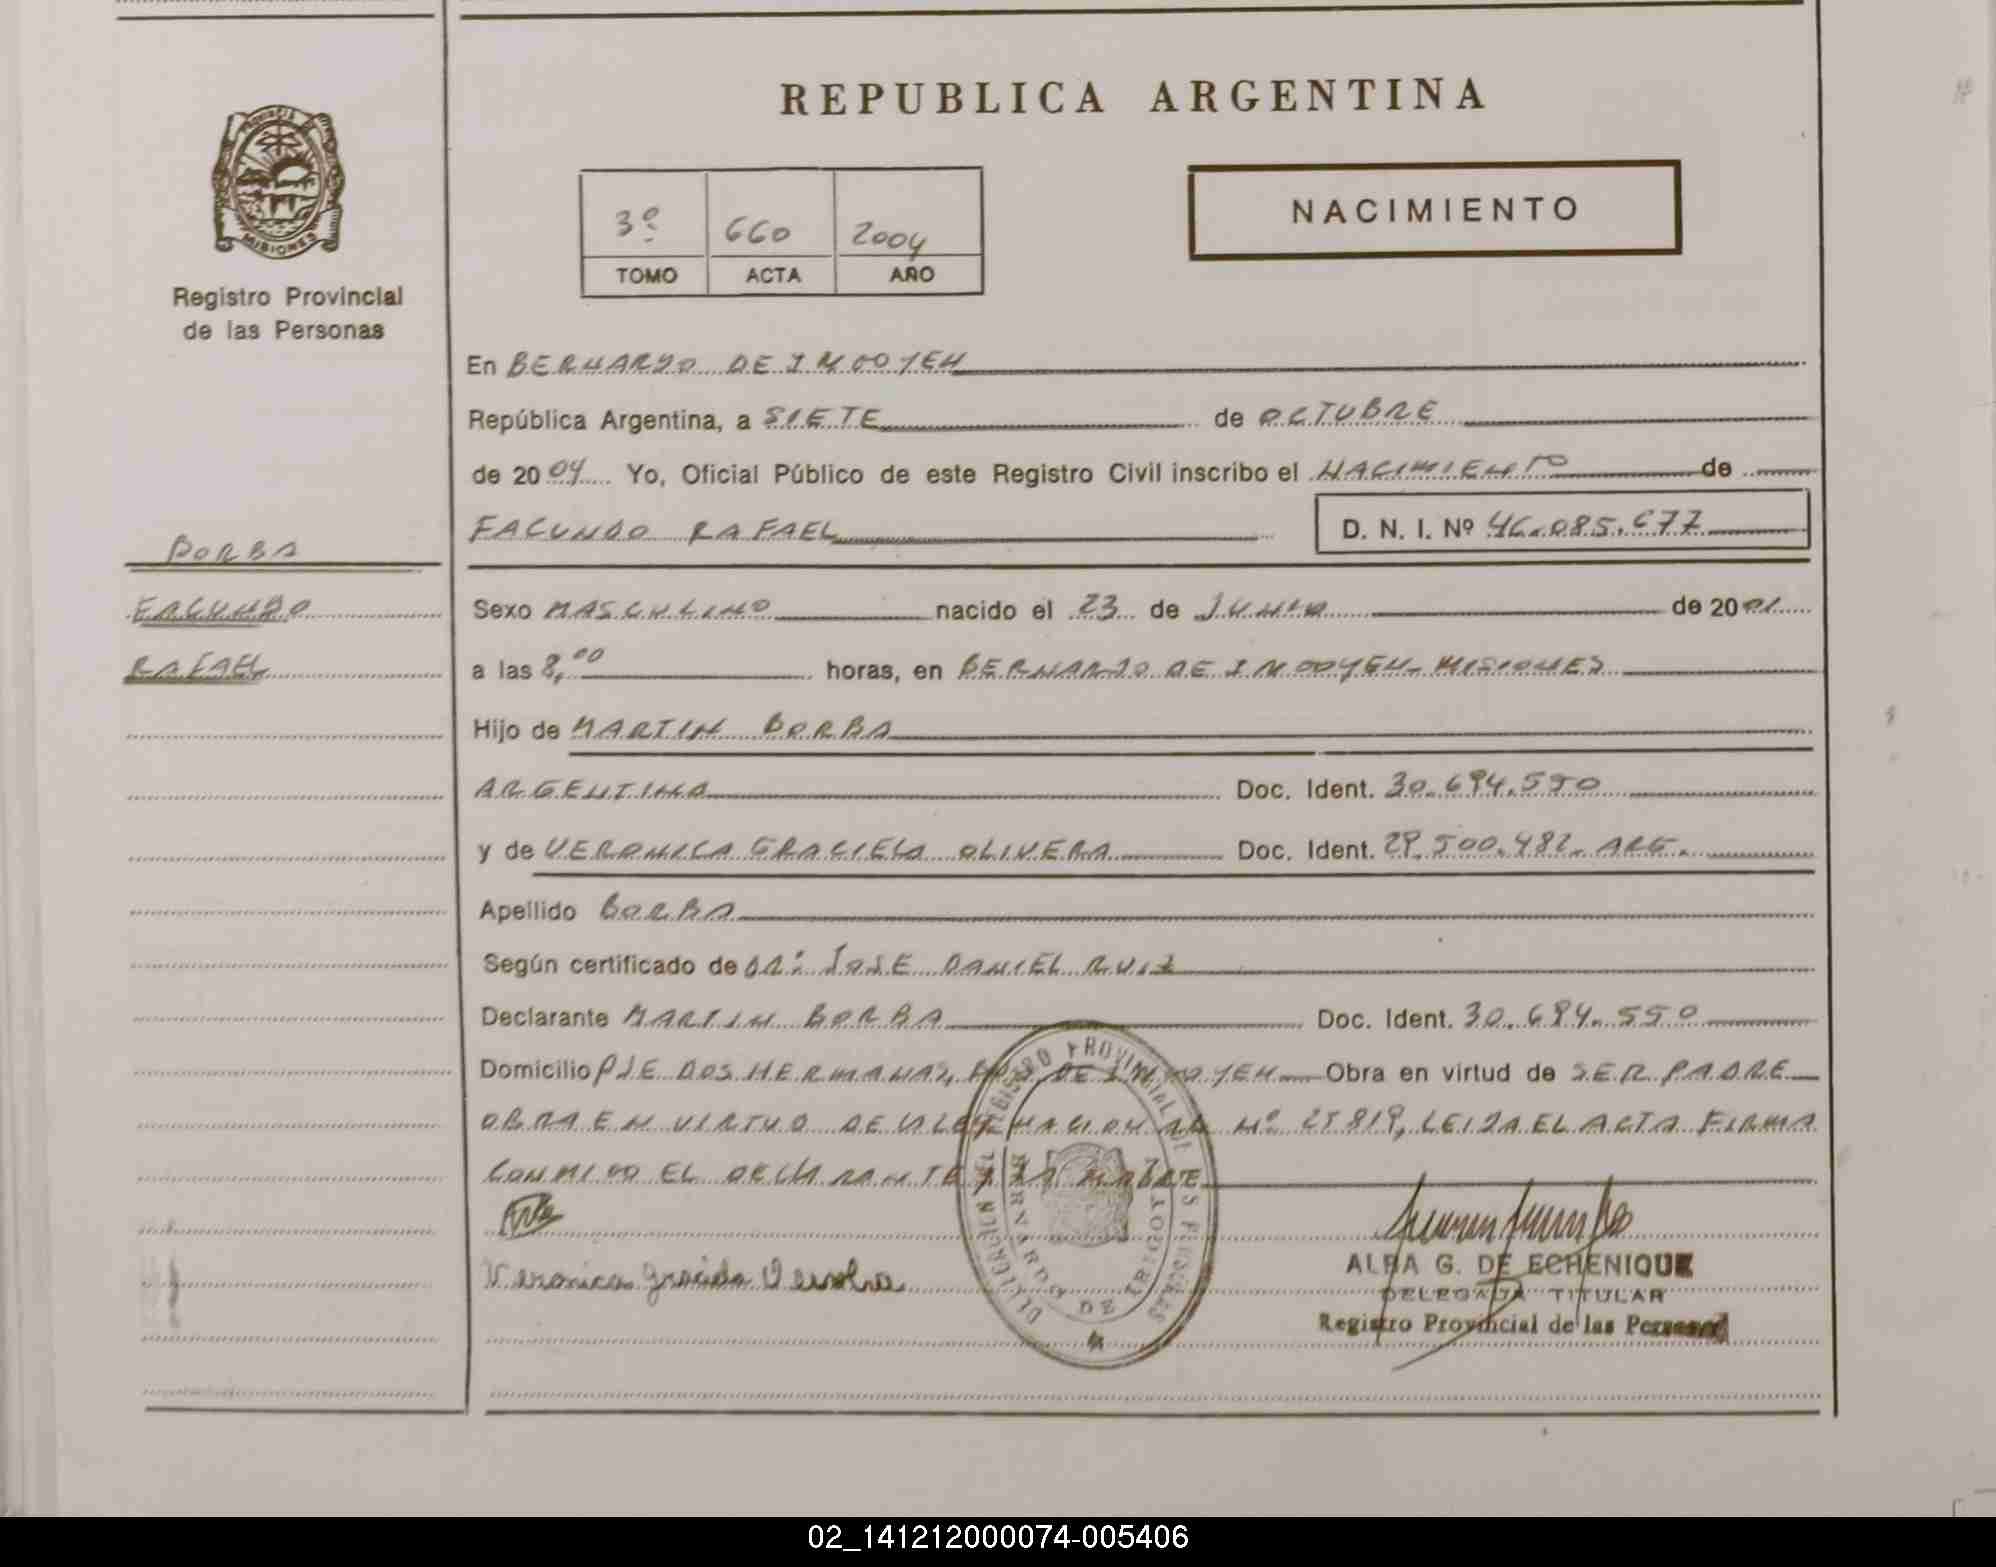 REPUBLICA ARGENTINA
PROVINCIA
MISIONES
Registro Provincial
de las Personas
3º 660 2004
TOMO ACTA AÑO
NACIMIENTO
En BERNARDO DE IRIGOYEN
República Argentina, a SIETE de OCTUBRE
de 2004 Yo, Oficial Público de este Registro Civil inscribo el NACIMIENTO de
FACUNDO RAFAEL D. N. I. Nº 46.085.677
BORBA
FACUNDO
RAFAEL
Sexo MASCULINO nacido el 23 de JUNIO de 2001
a las 8,00 horas, en BERNARDO DE IRIGOYEN - MISIONES
Hijo de MARTIN BORBA
ARGENTINA Doc. Ident. 30.694.550
y de VERONICA GRACIELA OLIVERA Doc. Ident. 29.500.482 - ARG.
Apellido BORBA
Según certificado de DR: JOSE DANIEL RUIZ
Declarante MARTIN BORBA Doc. Ident. 30.694.550
Domicilio PJE DOS HERMANAS, DE IRIGOYEN Obra en virtud de SER PADRE
OBRA EN VIRTUD DE LA LEY NACIONAL Nº 25819, LEIDA EL ACTA FIRMA
CONMIGO EL DECLARANTE Y LA MADRE
Veronica Graciela Olivera
DELEGACION DEL REGISTRO PROVINCIAL DE LAS PERSONAS
BERNARDO DE IRIGOYEN
ALBA G. DE ECHENIQUE
DELEGADA TITULAR
Registro Provincial de las Personas
02_141212000074-005406